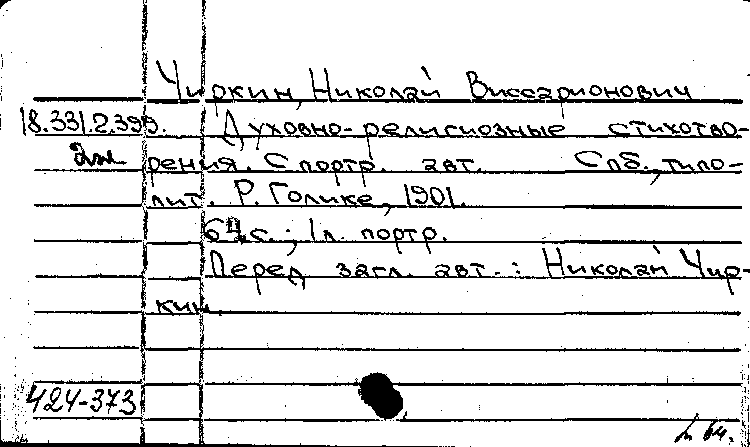 Чиркин, Николай Виссарионович
18.331.2.399. Духовно-религиозные стихотво-
рения. С портр. авт. Спб., типо-
лит. Р. Голике, 1901.
64 с.; 1 л. портр.
Перед загл. авт.: Николай Чир-
кин.
424-373